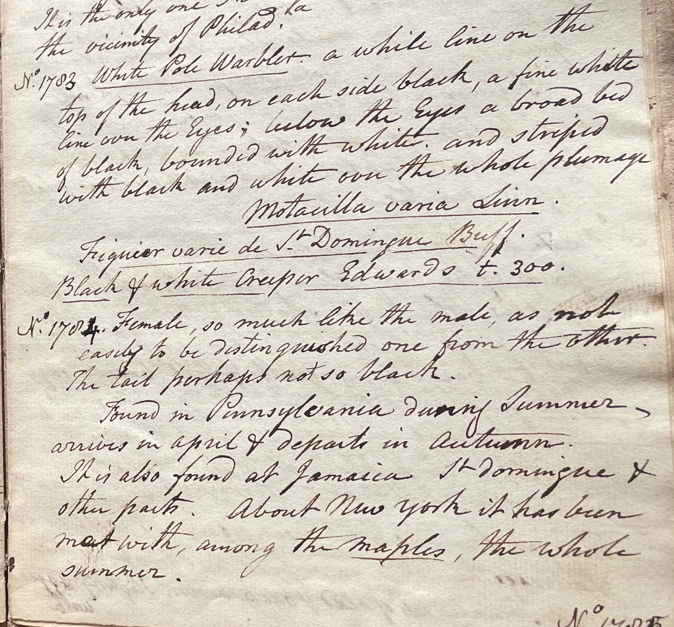 It is the only one
the vicinity of Philad.ia
No. 1783 White Pole Warbler. a while line on the
top of the head, on each side black, a fine white
line ovu the Eyes; below the Eyes a broad bed
of black, bounded with white. and striped
with black and white ovu the whole plumage
Motacilla varia Linn.
Figuier varié de St Domingue Buff.
Black & white Creeper Edwards t. 300.
No. 1784. Female, so much like the male, as note
easily to be distinguished one from the other.
The tail perhaps not so black.
Found in Pennsylvania during Summer,
arrives in april & departs in autumn.
It is also found at Jamaica St domingue &
other parts. About New york it has been
met with, among the maples, the whole
summer.
No 1785